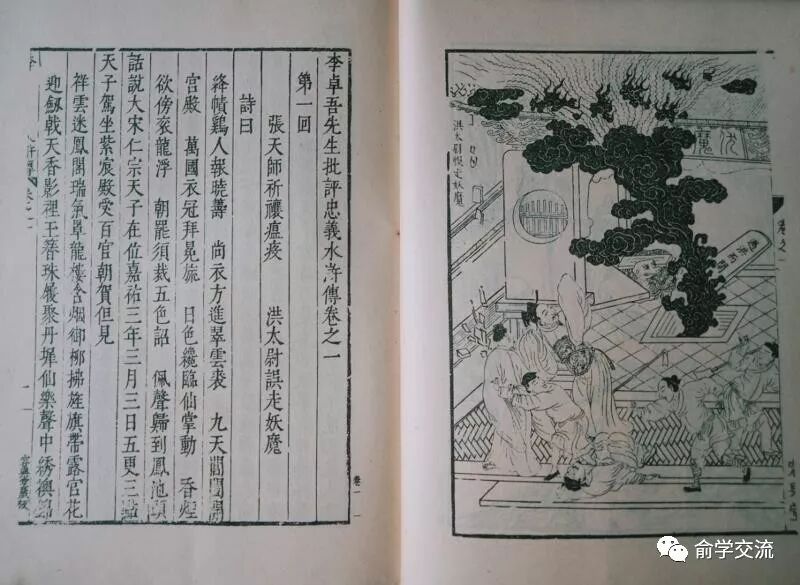 李卓吾先生批評忠義水滸傳卷之一
第一回
張天師祈禳瘟疫 洪太尉誤走妖魔
詩曰
絳幘鷄人報曉籌 尚衣方進翠雲裘 九天閶闔開
宮殿 萬國衣冠拜冕旒 日色纔臨仙掌動 香煙
欲傍衮龍浮 朝罷須裁五色詔 佩聲歸到鳳池頭
話說大宋仁宗天子在位嘉祐三年三月三日五更三點
天子駕坐紫宸殿受百官朝賀但見
祥雲迷鳳閣瑞氣罩龍樓含烟御柳拂旌旗帶露宮花
迎劍戟天香影裡玉簪珠履聚丹墀仙樂聲中綉襖錦
卷一
一
容與堂藏板
伏魔
洪太尉誤走妖魔
遇洪而開
卷之一
俞学交流